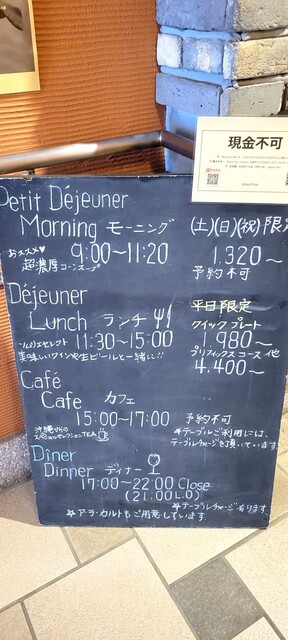 現金不可
Petit Déjeuner
Morning モーニング (土)(日)(祝)限定
おススメ♥ 9:00〜11:20 1.320〜
超濃厚コーンスープ 予約不可
Déjeuner 平日限定
Lunch ランチ クイックプレート
11:30〜15:00 1.980〜
美味しいワインや生ビールと一緒に!! プリフィックスコース他
4.400〜
Café
Cafe カフェ
15:00〜17:00 予約不可
沖縄からの
スペシャルセレクションTEA
☆テーブルご利用には、
テーブルチャージを頂いています。
Dîner
Dinner ディナー
17:00〜22:00 Close
(21:00 L.O)
☆テーブルチャージ有ります。
☆ア・ラ・カルトもご用意しています。